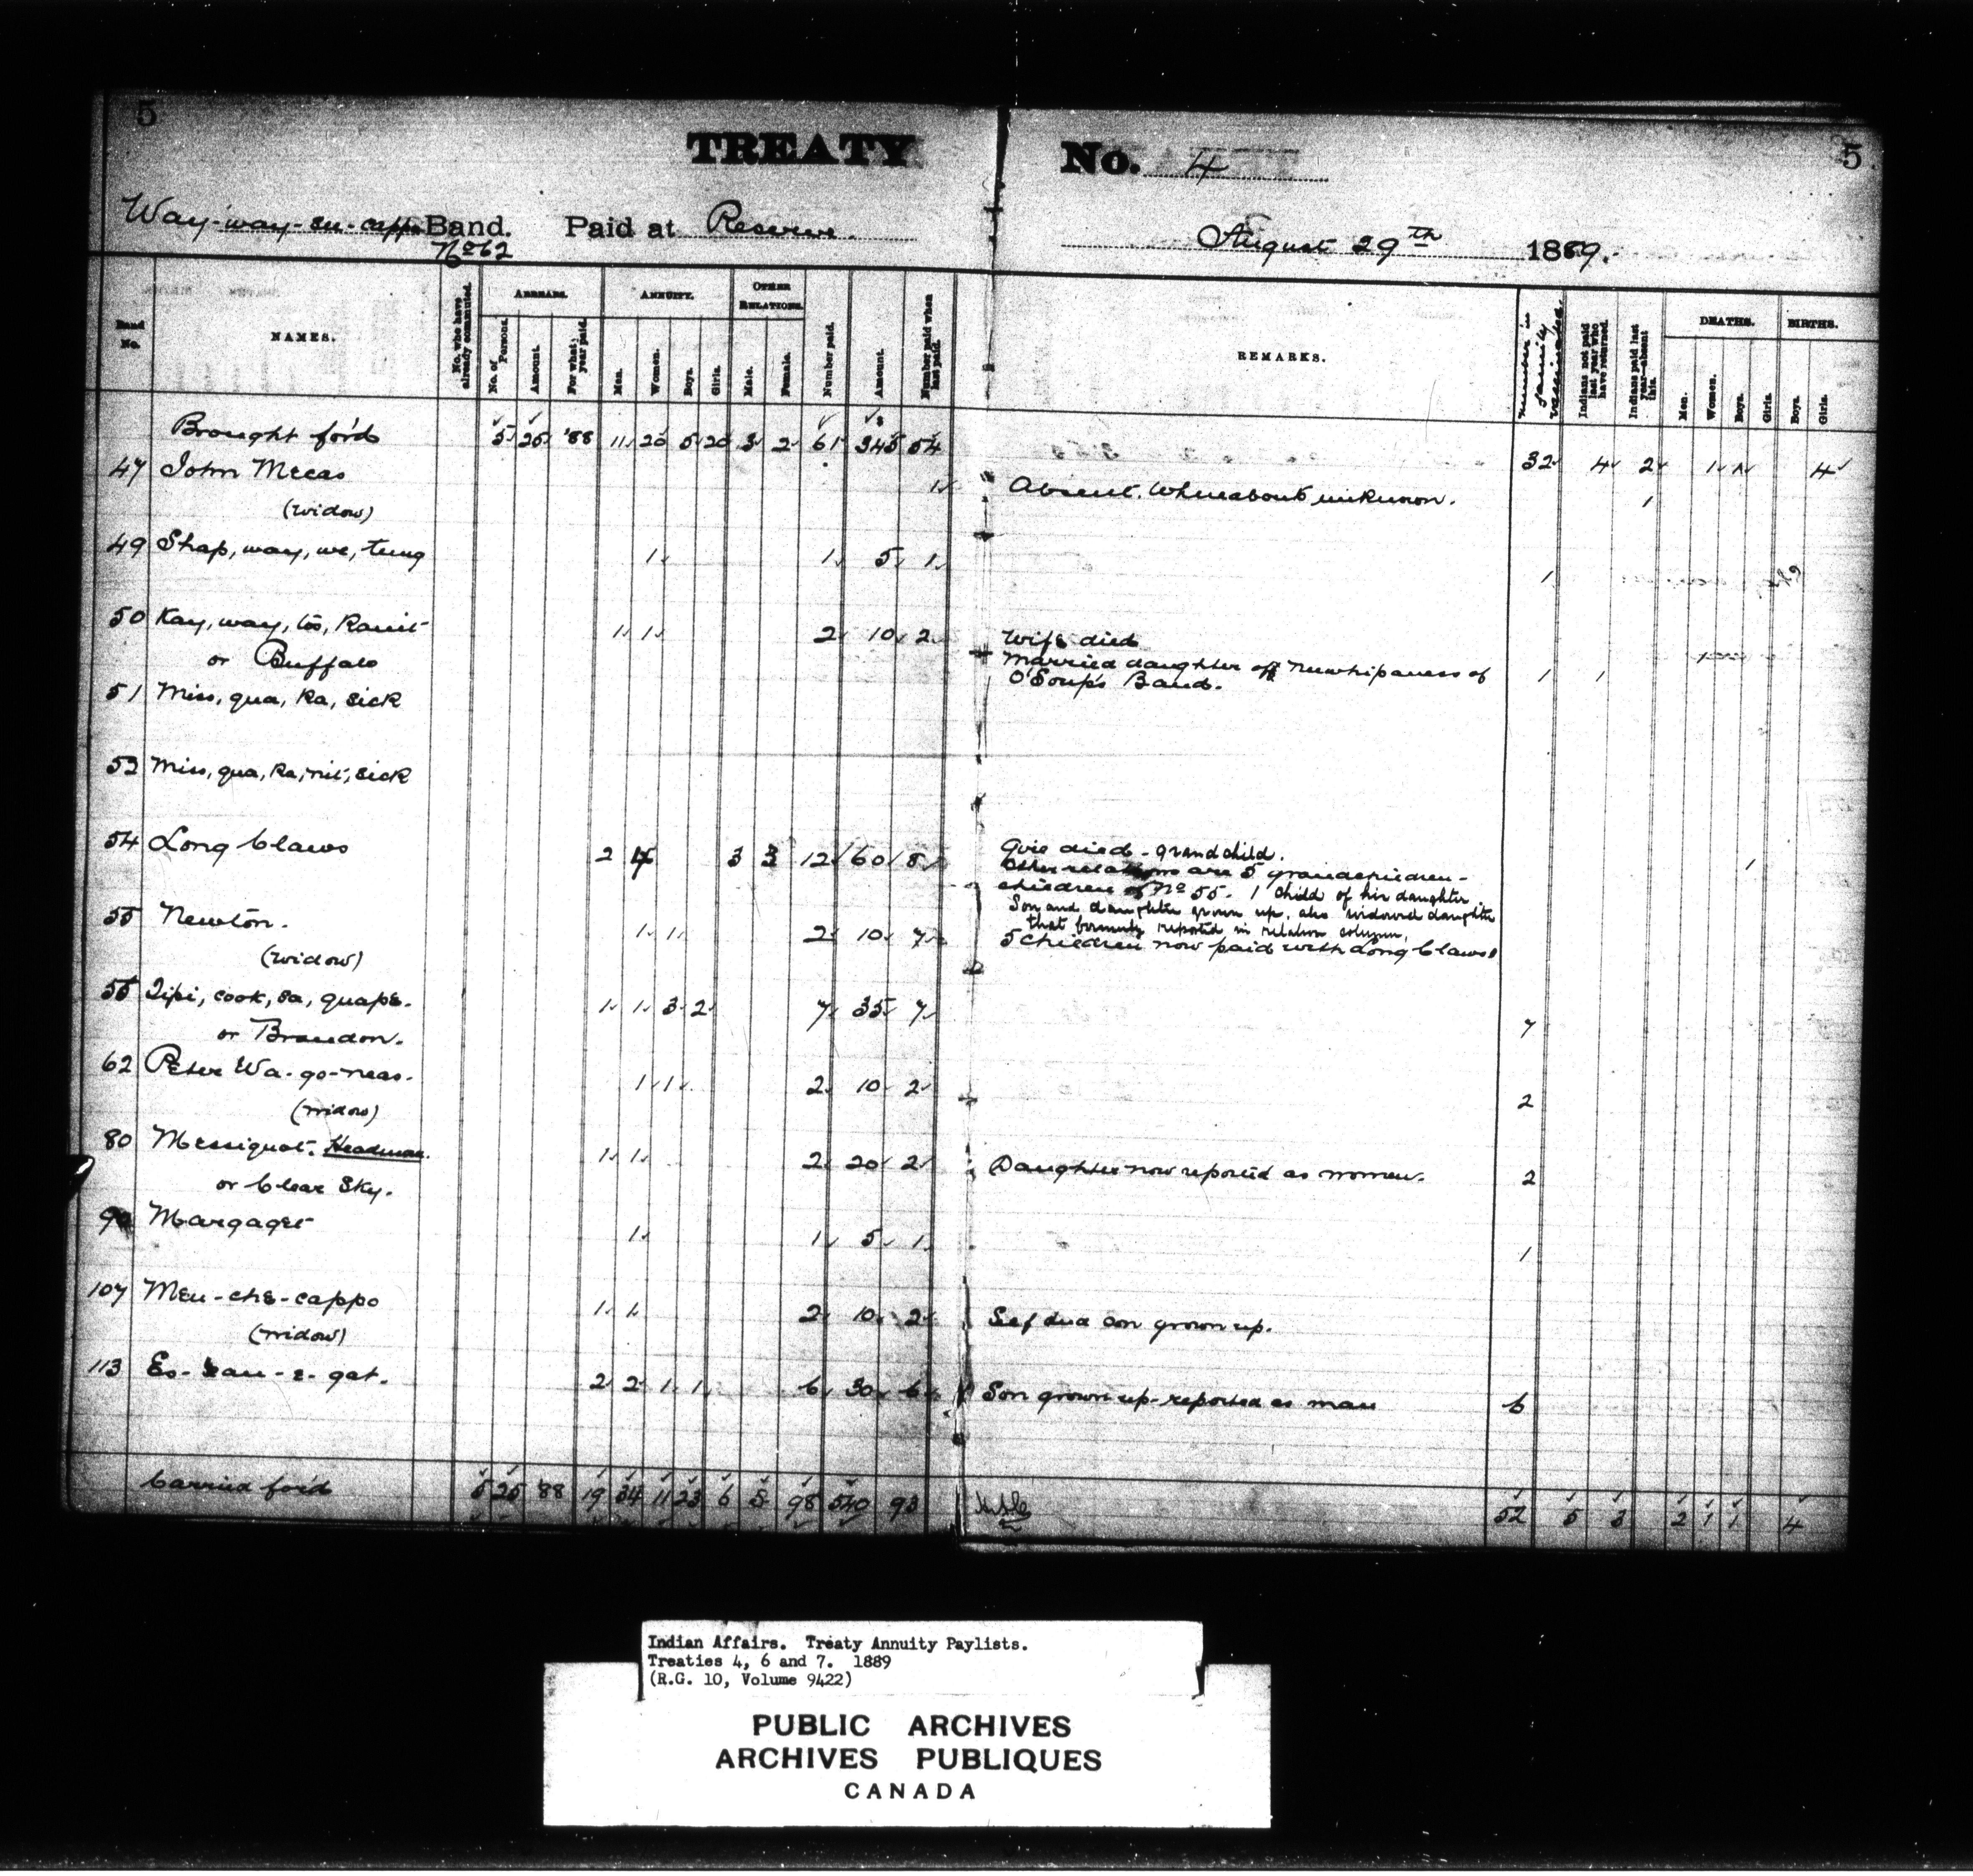 5
5
TREATY No. 4
Way-way-see-cappo Band. Paid at Reserve. August 29th 1889.
No 62
Band No.
NAMES.
No. who have already commuted.
ARREARS.
No. of Persons.
Amount.
For what year paid.
ANNUITY.
Men.
Women.
Boys.
Girls.
OTHER RELATIONS.
Male.
Female.
Number paid.
Amount.
Number paid when last paid.
REMARKS.
Number in family vaccinated.
Indians not paid last year who have returned.
Indians paid last year—absent this.
DEATHS.
Men.
Women.
Boys.
Girls.
BIRTHS.
Boys.
Girls.
Brought for'd 5 25 '88 11 20 5 20 3 2 61 345 54 32 4 2 1 1 4
47 John Mecas 1 Absent. Whereabouts unknown. 1
(widow)
49 Shap, way, we, tung 1 1 5 1 1
50 Kay, way, tos, Kanit 1 1 2 10 2 Wife died
or Buffalo Married daughter of Newhipaness of 1 1
O'Soup's Band.
51 Miss, qua, ka, sick
53 Miss, qua, ka, nit, sick
54 Long Claws 2 3 3 12 60 8 Girl died - grandchild. 1
Other relations are 5 grandchildren -
children of No 55. 1 child of his daughter.
Son and daughter grown up, also widowed daughter
that formerly reported in relation column.
55 Newton. 1 1 2 10 7 5 Children now paid with Long Claws
(widow)
Tipi, cook, sa, quape. 1 1 3 2 7 35 7 7
or Brandon.
62 Peter Wa-go-neas. 1 1 2 10 2 2
(widow)
80 Messiquot. Headman. 1 1 2 20 2 Daughter now reported as women. 2
or Clear Sky.
Margaget 1 1 5 1 1
107 Meu-che-cappo 1 1 2 10 2 son grown up.
(widow)
113 2 2 1 1 6 30 6 Son grown up - reported as man 6
Carried for'd 5 25 '88 19 34 11 23 6 5 98 540 93 52 5 3 2 1 1 4
Indian Affairs. Treaty Annuity Paylists.
Treaties 4, 6 and 7. 1889
(R.G. 10, Volume 9422)
PUBLIC ARCHIVES
ARCHIVES PUBLIQUES
CANADA